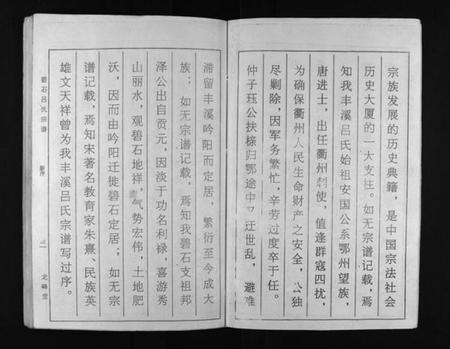 宗族发展的历史典籍，是中国宗法社会
历史大厦的一大支柱。如无宗谱记载，焉
知我丰溪吕氏始祖安国公系鄂州望族，
唐进士，出任衢州刺使，值逢群寇四扰，
为确保衢州人民生命财产之安全，公独
尽剿除，因军务繁忙，辛劳过度卒于任。
仲子珏公扶榇归鄂途中又迂世乱，避难
滞留丰溪吟阳而定居，繁衍至今成大
族；如无宗谱记载，焉知我碧石支祖邦
泽公出自贡元，因淡于功名利禄，喜游秀
山丽水，观碧石地祥，气势宏伟，土地肥
沃，因而由吟阳迁徙碧石定居；如无宗
谱记载，焉知宋著名教育家朱熹、民族英
雄文天祥曾为我丰溪吕氏宗谱写过序。
碧石吕氏宗谱